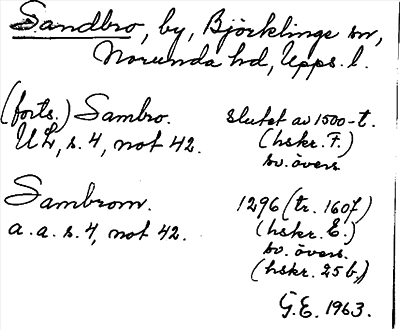 Sandbro, by, Björklinge sn,
Norunda hd, Upps. l.
(forts.) Sambro. slutet av 1500-t.
UL, s. 4, not 42. (hskr. F.)
sv. övers.
Sambrom. 1296 (tr. 1607)
a. a. s. 4, not 42. (hskr. E.)
sv. övers.
(hskr. 25 b,)
G.E. 1963.